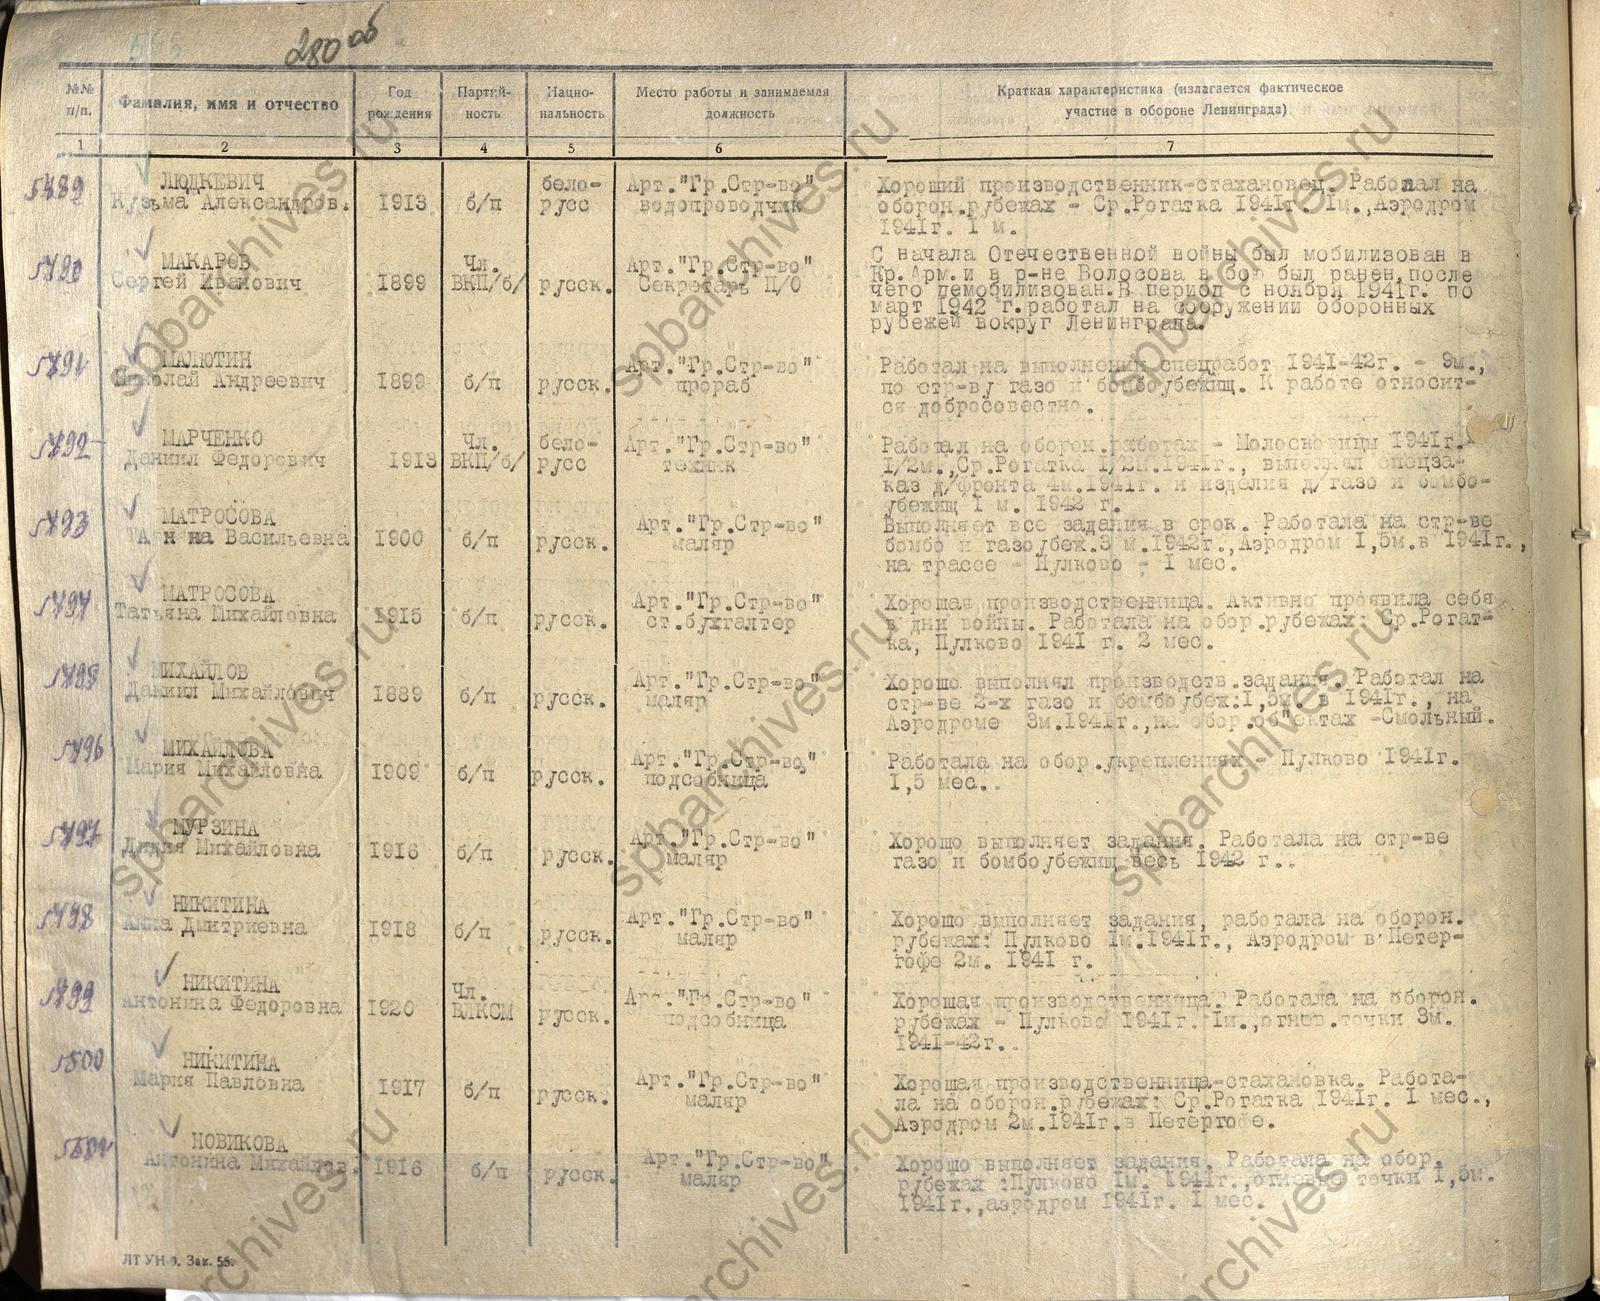 280 об
№№ п/п.
Фамилия, имя и отчество
Год рождения
Партий-ность
Нацио-нальность
Место работы и занимаемая должность
Краткая характеристика (излагается фактическое участие в обороне Ленинграда)
1 2 3 4 5 6 7
5789 ЛЮДКЕВИЧ бело- Арт."Гр.Стр-во" Хороший производственник-стахановец. Работал на
Кузьма Александров. 1913 б/п русс водопроводчик оборон.рубежах - Ср.Рогатка 1941г. 1м.,Аэродром
1941г. 1 м.
5790 МАКАРОВ Чл. Арт."Гр.Стр-во" С начала Отечественной войны был мобилизован в
Сергей Иванович 1899 ВКП/б/ русск. Секретарь П/О Кр.Арм.и в р-не Волосова в бою был ранен,после
чего демобилизован.В период с ноября 1941г. по
март 1942 г.работал на сооружении оборонных
рубежей вокруг Ленинграда.
5791 МАЛЮТИН Арт."Гр.Стр-во" Работал на выполнении спецработ 1941-42г. - 9м.,
Николай Андреевич 1899 б/п русск. прораб по стр-ву газо и бомбоубежищ. К работе относит-
ся добросовестно.
5792 МАРЧЕНКО Чл. бело- Арт."Гр.Стр-во" Работал на оборон.работах - Молосковицы 1941г.
Даниил Федорович 1913 ВКП/б/ русс техник 1/2м.,Ср.Рогатка 1/2м.1941г., выполнял спецза-
каз д/фронта 4м.1941г. и изделия д/газо и бомбо-
убежищ 1 м. 1942 г.
5793 МАТРОСОВА Арт."Гр.Стр-во" Выполняет все задания в срок. Работала на стр-ве
Анна Васильевна 1900 б/п русск. маляр бомбо и газоубеж.3 м.1942г.,Аэродром 1,5м.в 1941г.,
на трассе - Пулково - 1 мес.
5794 МАТРОСОВА Арт."Гр.Стр-во" Хорошая производственница. Активно проявила себя
Татьяна Михайловна 1915 б/п русск. ст.бухгалтер в дни войны. Работала на обор.рубежах: Ср.Рогат-
ка, Пулково 1941 г. 2 мес.
5795 МИХАЙЛОВ Арт."Гр.Стр-во" Хорошо выполнял производств.задания. Работал на
Даниил Михайлович 1889 б/п русск. маляр стр-ве 2-х газо и бомбоубеж:1,5м. в 1941г., на
Аэродроме 3м.1941г.,на обор.об"ектах -Смольный.
5796 МИХАЙЛОВА Арт."Гр.Стр-во" Работала на обор.укреплениях - Пулково 1941г.
Мария Михайловна 1909 б/п русск. подсобница 1,5 мес..
5797 МУРЗИНА Арт."Гр.Стр-во" Хорошо выполняет задания. Работала на стр-ве
Лидия Михайловна 1916 б/п русск. маляр газо и бомбоубежищ весь 1942 г..
5798 НИКИТИНА Арт."Гр.Стр-во" Хорошо выполняет задания, работала на оборон.
Анна Дмитриевна 1918 б/п русск. маляр рубежах: Пулково 1м.1941г., Аэродром в Петер-
гофе 2м. 1941 г.
5799 НИКИТИНА Чл. Арт."Гр.Стр-во" Хорошая производственница. Работала на оборон.
Антонина Федоровна 1920 ВЛКСМ русск. подсобница рубежах - Пулково 1941г. 1м.,огнев.точки 3м.
1941-42г..
5800 НИКИТИНА Арт."Гр.Стр-во" Хорошая производственница-стахановка. Работа-
Мария Павловна 1917 б/п русск. маляр ла на оборон.рубежах: Ср.Рогатка 1941г. 1 мес.,
Аэродром 2м.1941г.в Петергофе.
5801 НОВИКОВА Арт."Гр.Стр-во" Хорошо выполняет задания. Работала на обор.
Антонина Михайлов. 1916 б/п русск. маляр рубежах :Пулково 1м. 1941г.,огневые точки 1,5м.
1941г.,аэродром 1941г. 1 мес.
ЛТ УН-9. Зак. 55.
spbarchives.ru